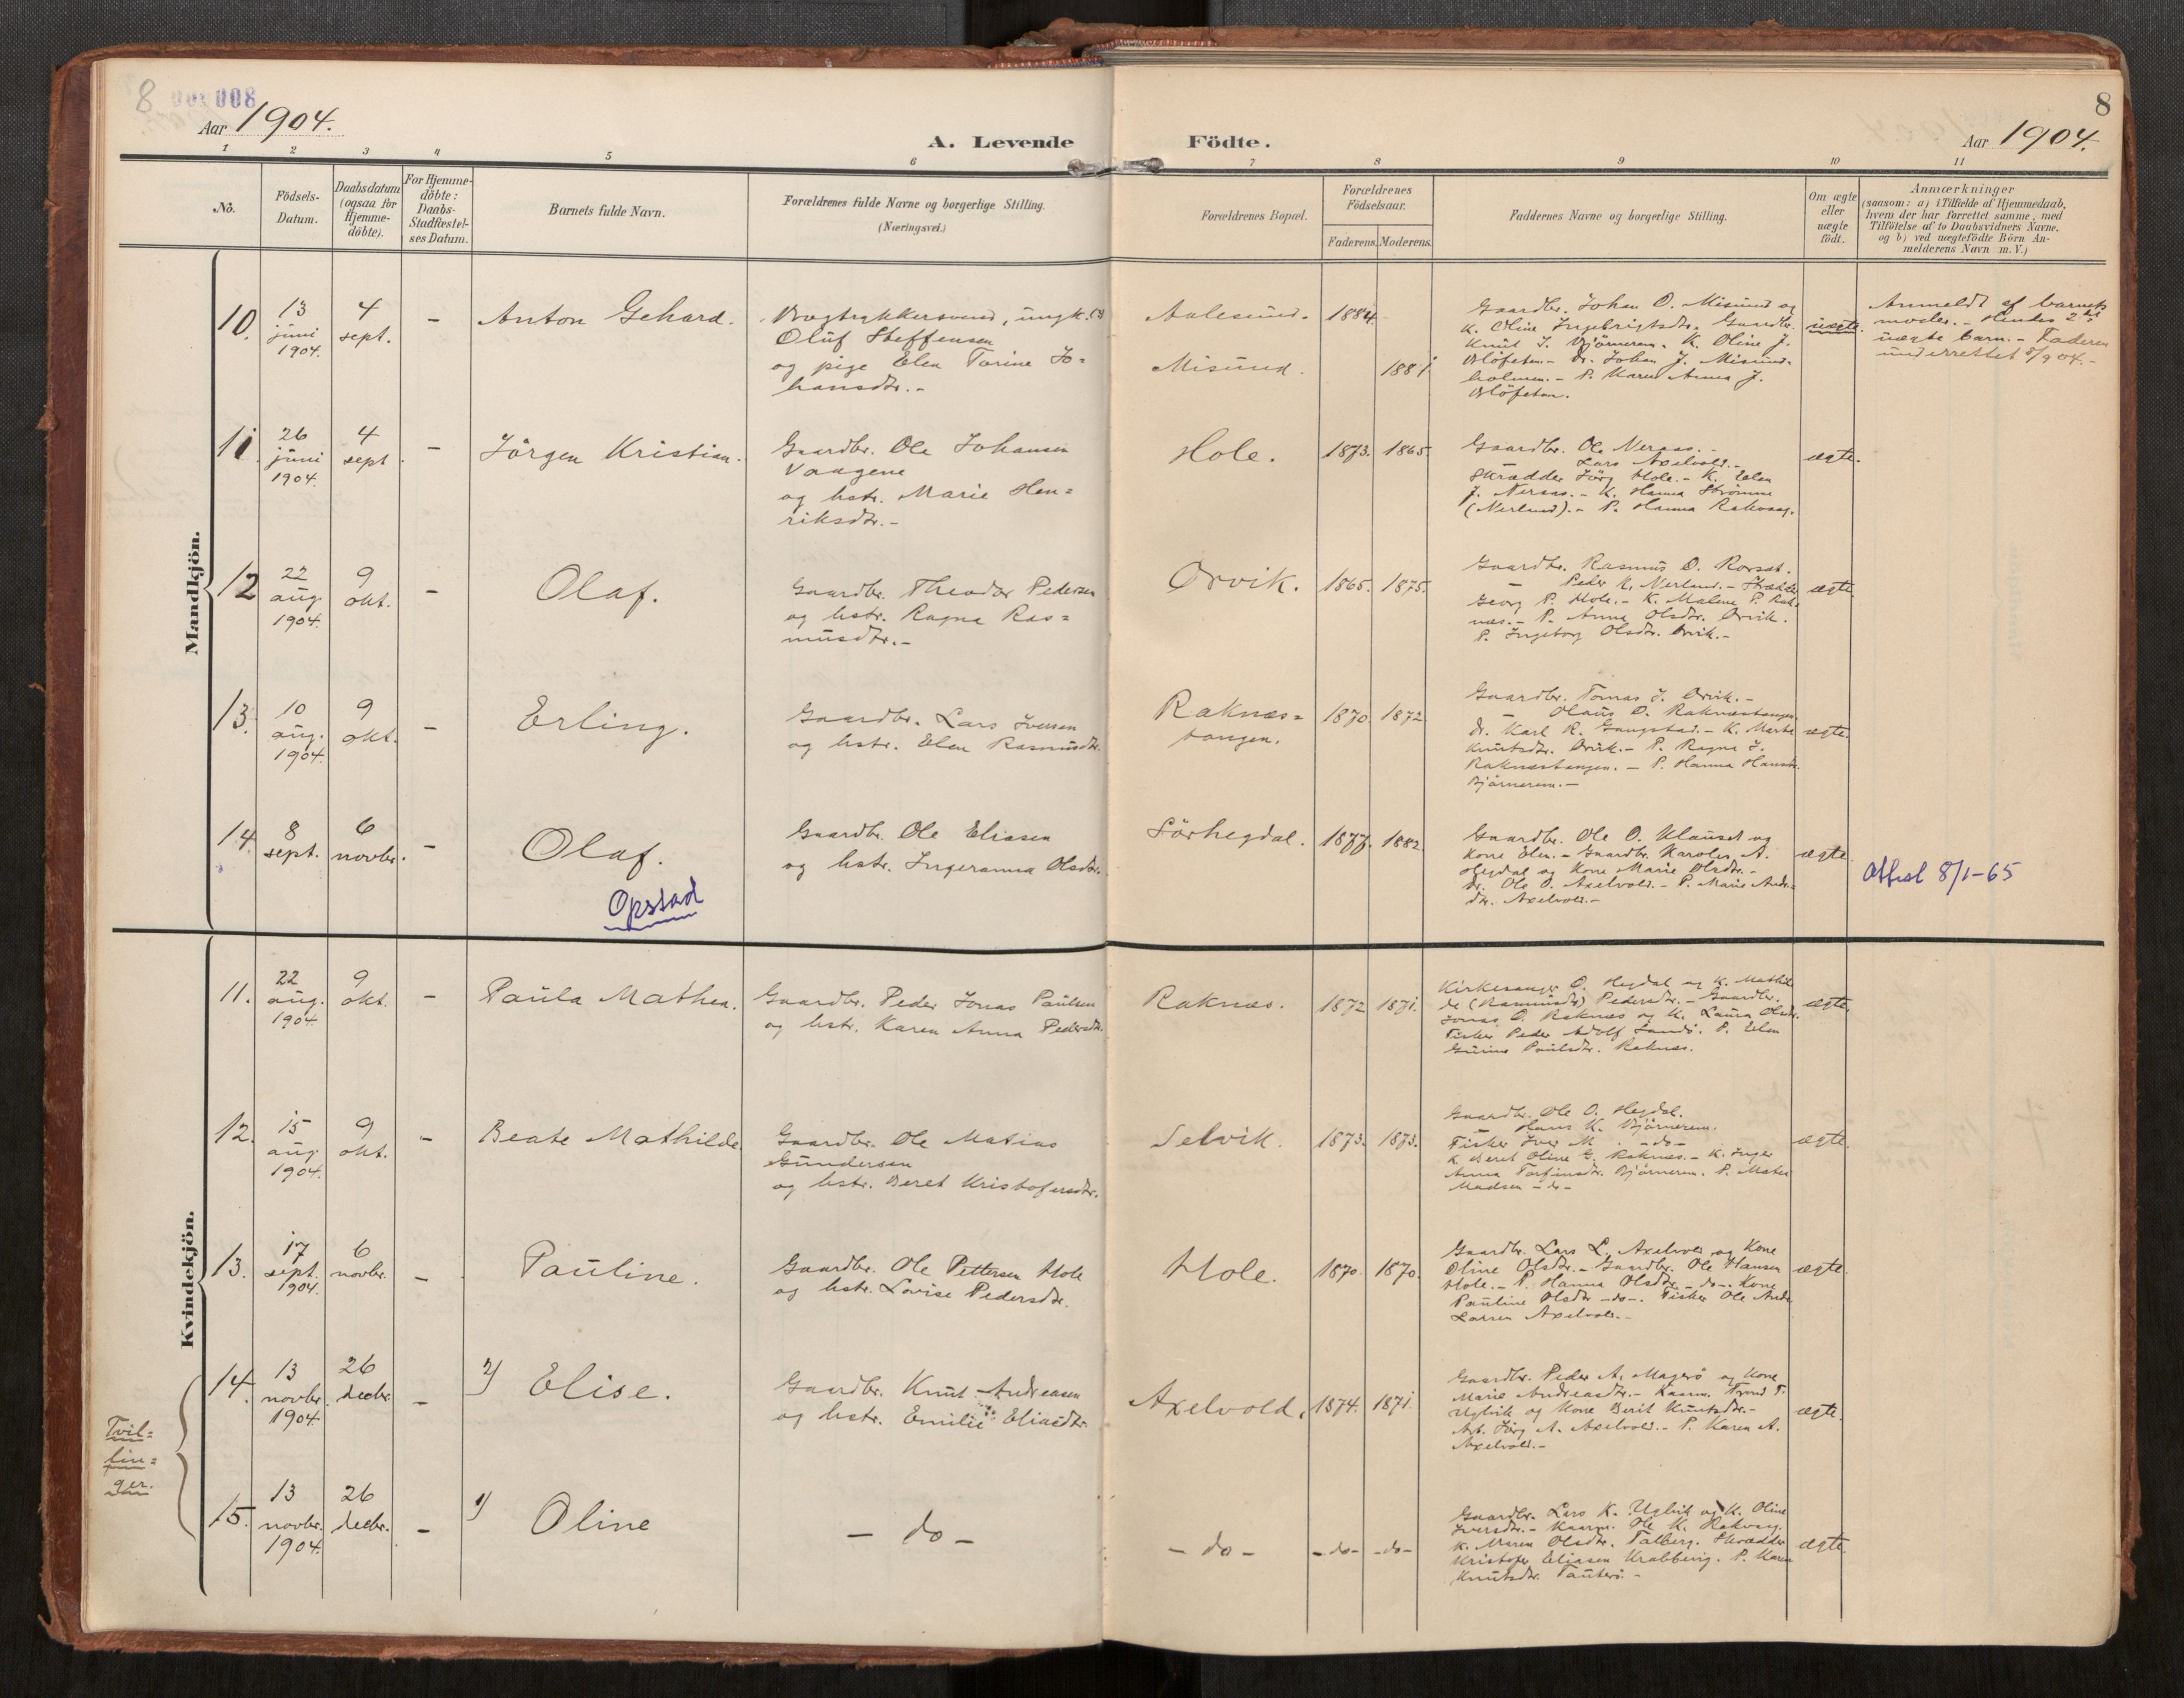 8 008
Aar 1904.
A. Levende Födte.
8
Aar 1904.
1 2 3 4 5 6 7 8 9 10 11
No.
Födsels-
Datum.
Daabsdatum
(ogsaa for
Hjemme-
döbte).
For Hjemme-
döbte:
Daabs-
Stadfæstel-
ses Datum.
Barnets fulde Navn.
Forældrenes fulde Navne og borgerlige Stilling.
(Næringsvei.)
Forældrenes Bopæl.
Forældrenes
Födselsaar.
Faderens. Moderens.
Faddernes Navne og borgerlige Stilling.
Om ægte
eller
uægte
födt.
Anmærkninger
(saasom: a) i Tilfælde af Hjemmedaab,
hvem der har forrettet samme, med
Tilföielse af to Daabsvidners Navne,
og b) ved uægtefödte Börn An-
melderens Navn m. V.)
Mandkjön.
10.
13
juni
1904.
4
sept.
-
Anton Gehard.
Bogtrykkersvend, ungk.
Oluf Steffensen
og pige Elen Torine Jo=
hansdtr.-
Aalesund.
Misund.
1884.
1881
Gaardbr. Johan O. Misund og
K. Oline Ingebrigtsdtr. Gaardbr.
Knut J. Björnerem. K. Oline J.
Dr. Johan J. Misund-
holmen. - P. Karen Anna J.
uægte.
Anmeldt af barnets
moder. - Hendes 2det
uægte barn. - Faderen
underrettet 8/9 04.-
11.
26
juni
1904.
4
sept.
-
Jörgen Kristian.
Gaardbr. Ole Johansen
Vaagene
og hstr. Marie Hen=
riksdtr.-
Hole.
1873. 1865.
Gaardbr. Ole Nersas.-
Lars Axelvold.-
Skrædder Jörg Hole.- K. Elen
J. Nersas.- K. Hanna Strömme
(Nerland).- P. Hanna Rakvaag.
ægte.
12
22
aug.
1904.
9
okt.
-
Olaf.
Gaardbr. Theodor Pedersen
og hstr. Ragna Ras=
musdtr.-
Orvik.
1865. 1875.
Gaardbr. Rasmus O. Rorset.
- Peder K. Nerland.- Skrædder
Georg P. Hole.- K. Malene P. Rak-
næs.- P. Anna Olsdtr. Orvik.
P. Ingeborg Olsdtr. Orvik.-
ægte.
13.
10
aug.
1904.
9
okt.
-
Erling.
Gaardbr. Lars Iversen
og hstr. Elen Rasmusdtr.
Raknæs=
tangen.
1870. 1872.
Gaardbr. Tomas J. Orvik.-
- Olaus O. Raknæstangen
Dr. Karl R. Gangstad.- K. Marta
Knutsdtr. Orvik.- P. Ragna J.
Raknæstangen. - P. Hanna Hansdtr.
Björnerem.-
ægte.
14.
8
sept.
6
novbr.
-
Olaf.
Opstad
Gaardbr. Ole Eliasen
og hstr. Ingeranna Olsdtr.
Sörhegdal.
1877. 1882.
Gaardbr. Ole O. Klauset og
Kone Elen.- Gaardbr. Karoles A.
Hegdal og Kone Marie Olsdtr.-
Dr. Ole O. Axelvold.- P. Marie Andr=
dtr. Axelvold.-
ægte.
Attest 8/1-65
Kvindekjön.
11.
22
aug.
1904.
9
okt.
-
Paula Mathea.
Gaardbr. Peder Jonas Paulsen
og hstr. Karen Anna Pedersdtr.
Raknæs.
1872 1871.
Kirkesanger O. Hegdal og K. Mathil
de (Rasmusdtr) Pedersdtr.- Gaardbr.
Jonas O. Raknæs og K. Laura Olsdtr.
Fisker Peder Adolf Sandö. P. Elen
Gurine Paulsdtr. Raknæs.
ægte.
12.
15
aug.
1904.
9
okt.
-
Beate Mathilde
Gaardbr. Ole Matias
Gundersen
og hstr. Beret Kristofersdtr.
Selvik.
1873. 1873.
Gaardbr. Ole O. Hegdal.
- Hans K. Björnerem.
Fisker Iver M. -do-
K. Beret Oline G. Raknæs.- K. Inger
Anna Torfinsdtr. Björnerem. P. Matea
Madsen -do-
ægte.
13.
17
sept.
1904.
6
novbr.
-
Pauline.
Gaardbr. Ole Pettersen Hole
og hstr. Lovise Pedersdtr.
Hole.
1870. 1870.
Gaardbr. Lars L. Axelvold og Kone
Oline Olsdtr.- Gaardbr. Ole Hansen
Hole.- P. Hanna Olsdtr. -do-. Kone
Pauline Olsdtr -do-. Fisker Ole Andr.
Larsen Axelvold.-
ægte.
Tvil=
lin=
ger.
14.
13
novbr.
1904.
26
decbr.
-
2) Elise.
Gaardbr. Knut Andreasen
og hstr. Emilie Eliasdtr.
Axelvold.
1874. 1871.
Gaardbr. Peder A. Magerö og Kone
Marie Andreasdtr.- Kaarm. Trond T.
Uglvik og Kone Berit Knutsdtr.-
Arb. Jörg A. Axelvold.- P. Karen A.
Axelvold.-
ægte.
15.
13
novbr.
1904.
26
decbr.
-
1) Oline
- do -
- do -
-do- -do-
Gaardbr. Lars K. Uglvik og K. Oline
Iversdtr.- Kaarm. Ole K. Rakvaag.
K. Maren Olsdtr. Talberg. Skrædder
Kristofer Eliasen Krabbevig. P. Karen
Knutsdtr. Tauterö.-
ægte.